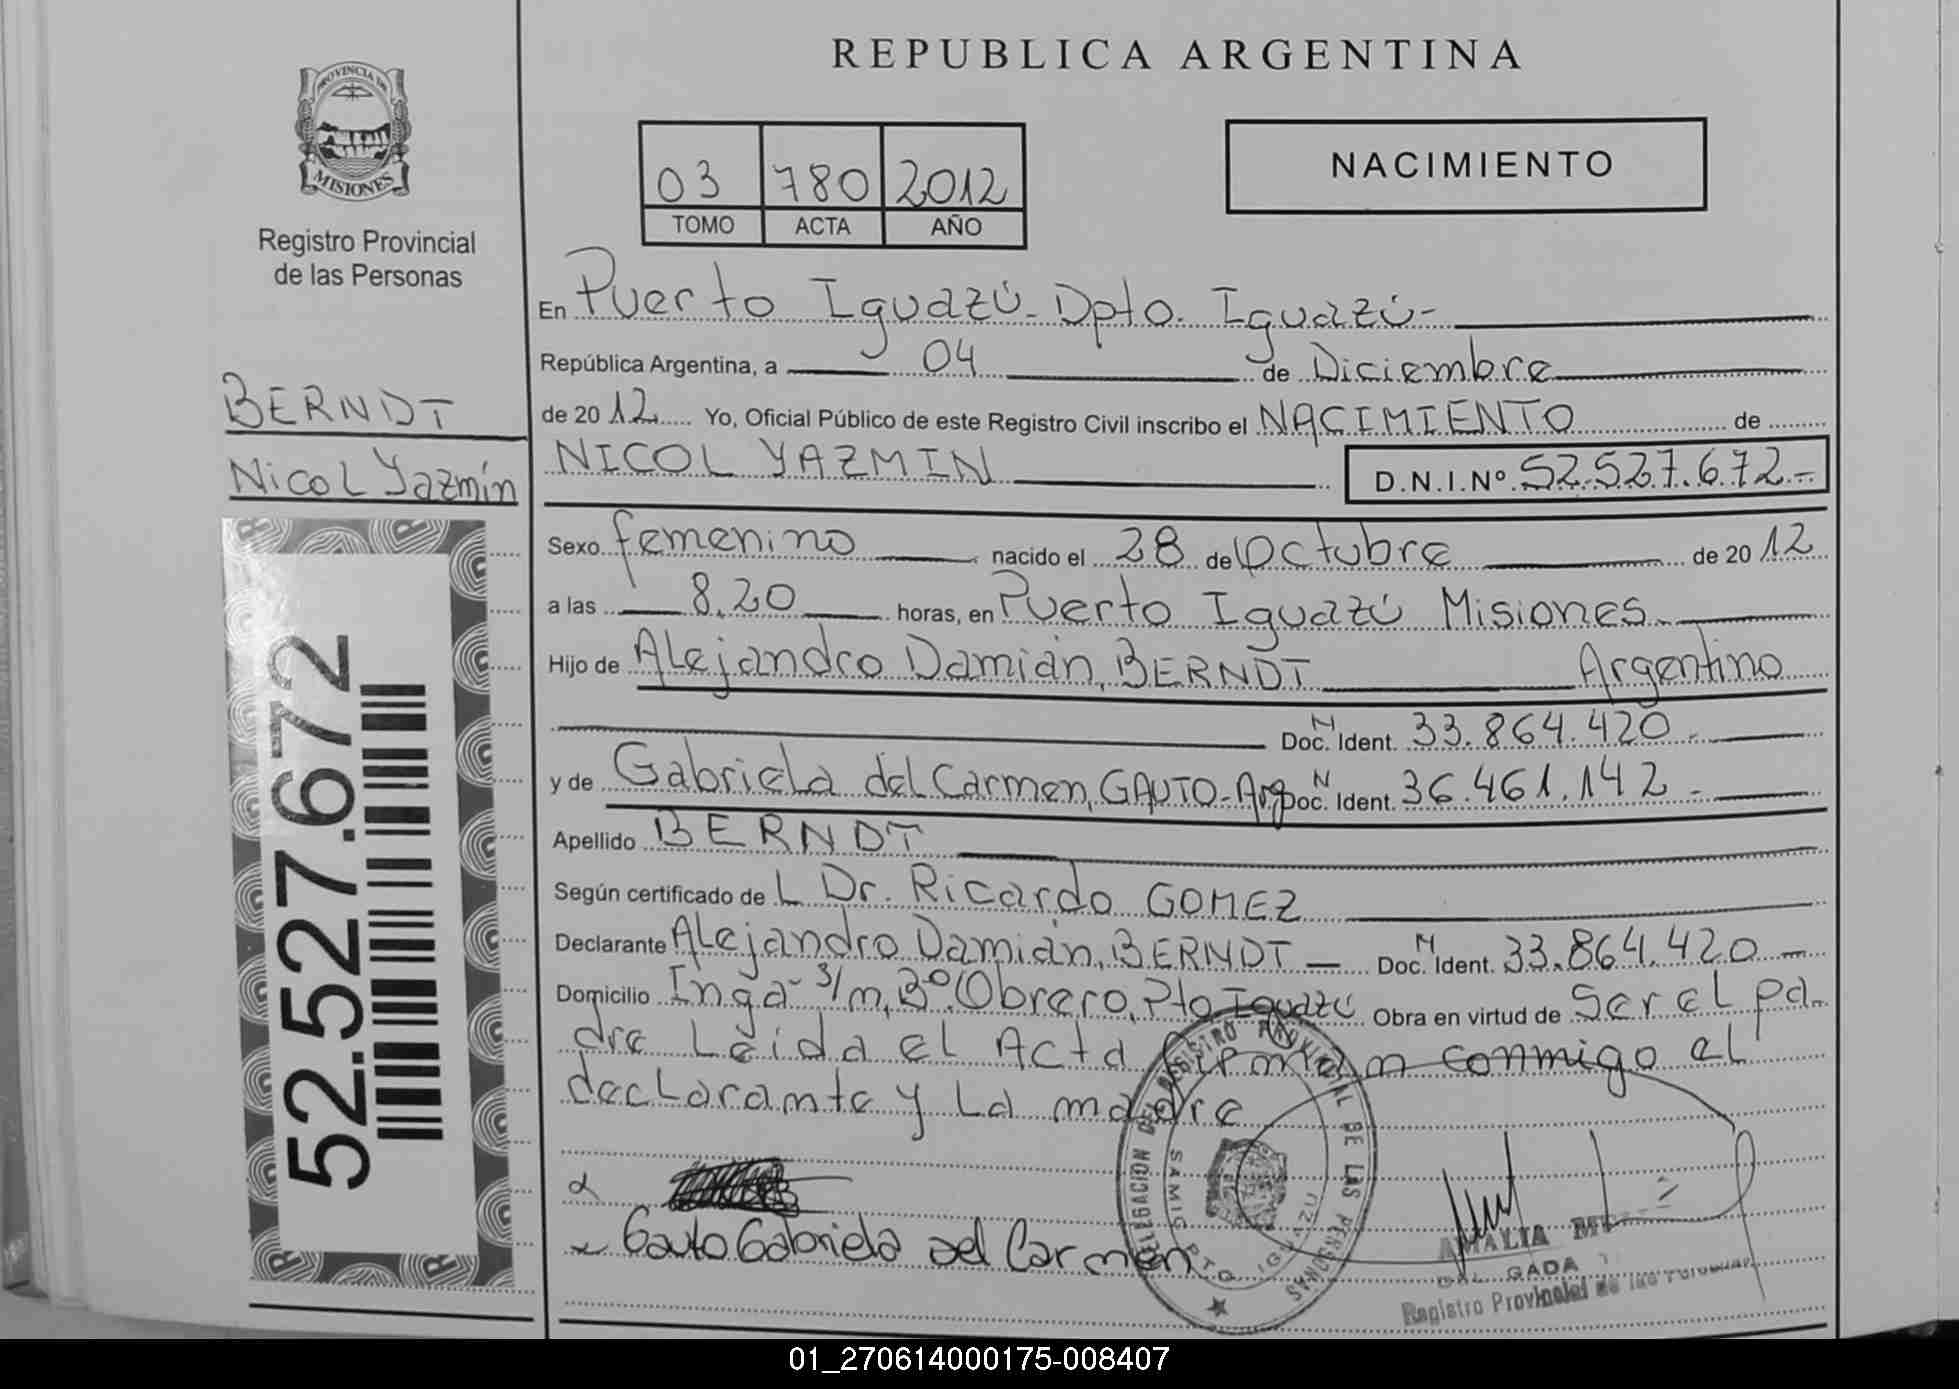 REPUBLICA ARGENTINA
PROVINCIA DE
MISIONES
Registro Provincial
de las Personas
03 780 2012
TOMO ACTA AÑO
NACIMIENTO
En Puerto Iguazú - Dpto. Iguazú -
República Argentina, a 04 de Diciembre
de 2012 Yo, Oficial Público de este Registro Civil inscribo el NACIMIENTO de
NICOL YAZMIN D.N.I.Nº 52.527.672.-
BERNDT
Nicol Yazmín
52.527.672
Sexo femenino nacido el 28 de Octubre de 2012
a las 8.20 horas, en Puerto Iguazú Misiones
Hijo de Alejandro Damián, BERNDT Argentino
Doc. N Ident. 33.864.420.-
y de Gabriela del Carmen, GAUTO - Arg Doc. N Ident. 36.461.142.-
Apellido BERNDT
Según certificado de L Dr. Ricardo GOMEZ
Declarante Alejandro Damián, BERNDT — Doc. N Ident. 33.864.420 —
Domicilio Inga - Bº Obrero, Pto Iguazú Obra en virtud de Ser el pa-
dre Leida el Acta Firman conmigo el
declarante y La madre
Gauto Gabriela del Carmen
DELEGACION DEL REGISTRO PROVINCIAL DE LAS PERSONAS
SAMIC PTO IGUAZU
AMALIA
Registro Provincial de las Personas
01_270614000175-008407